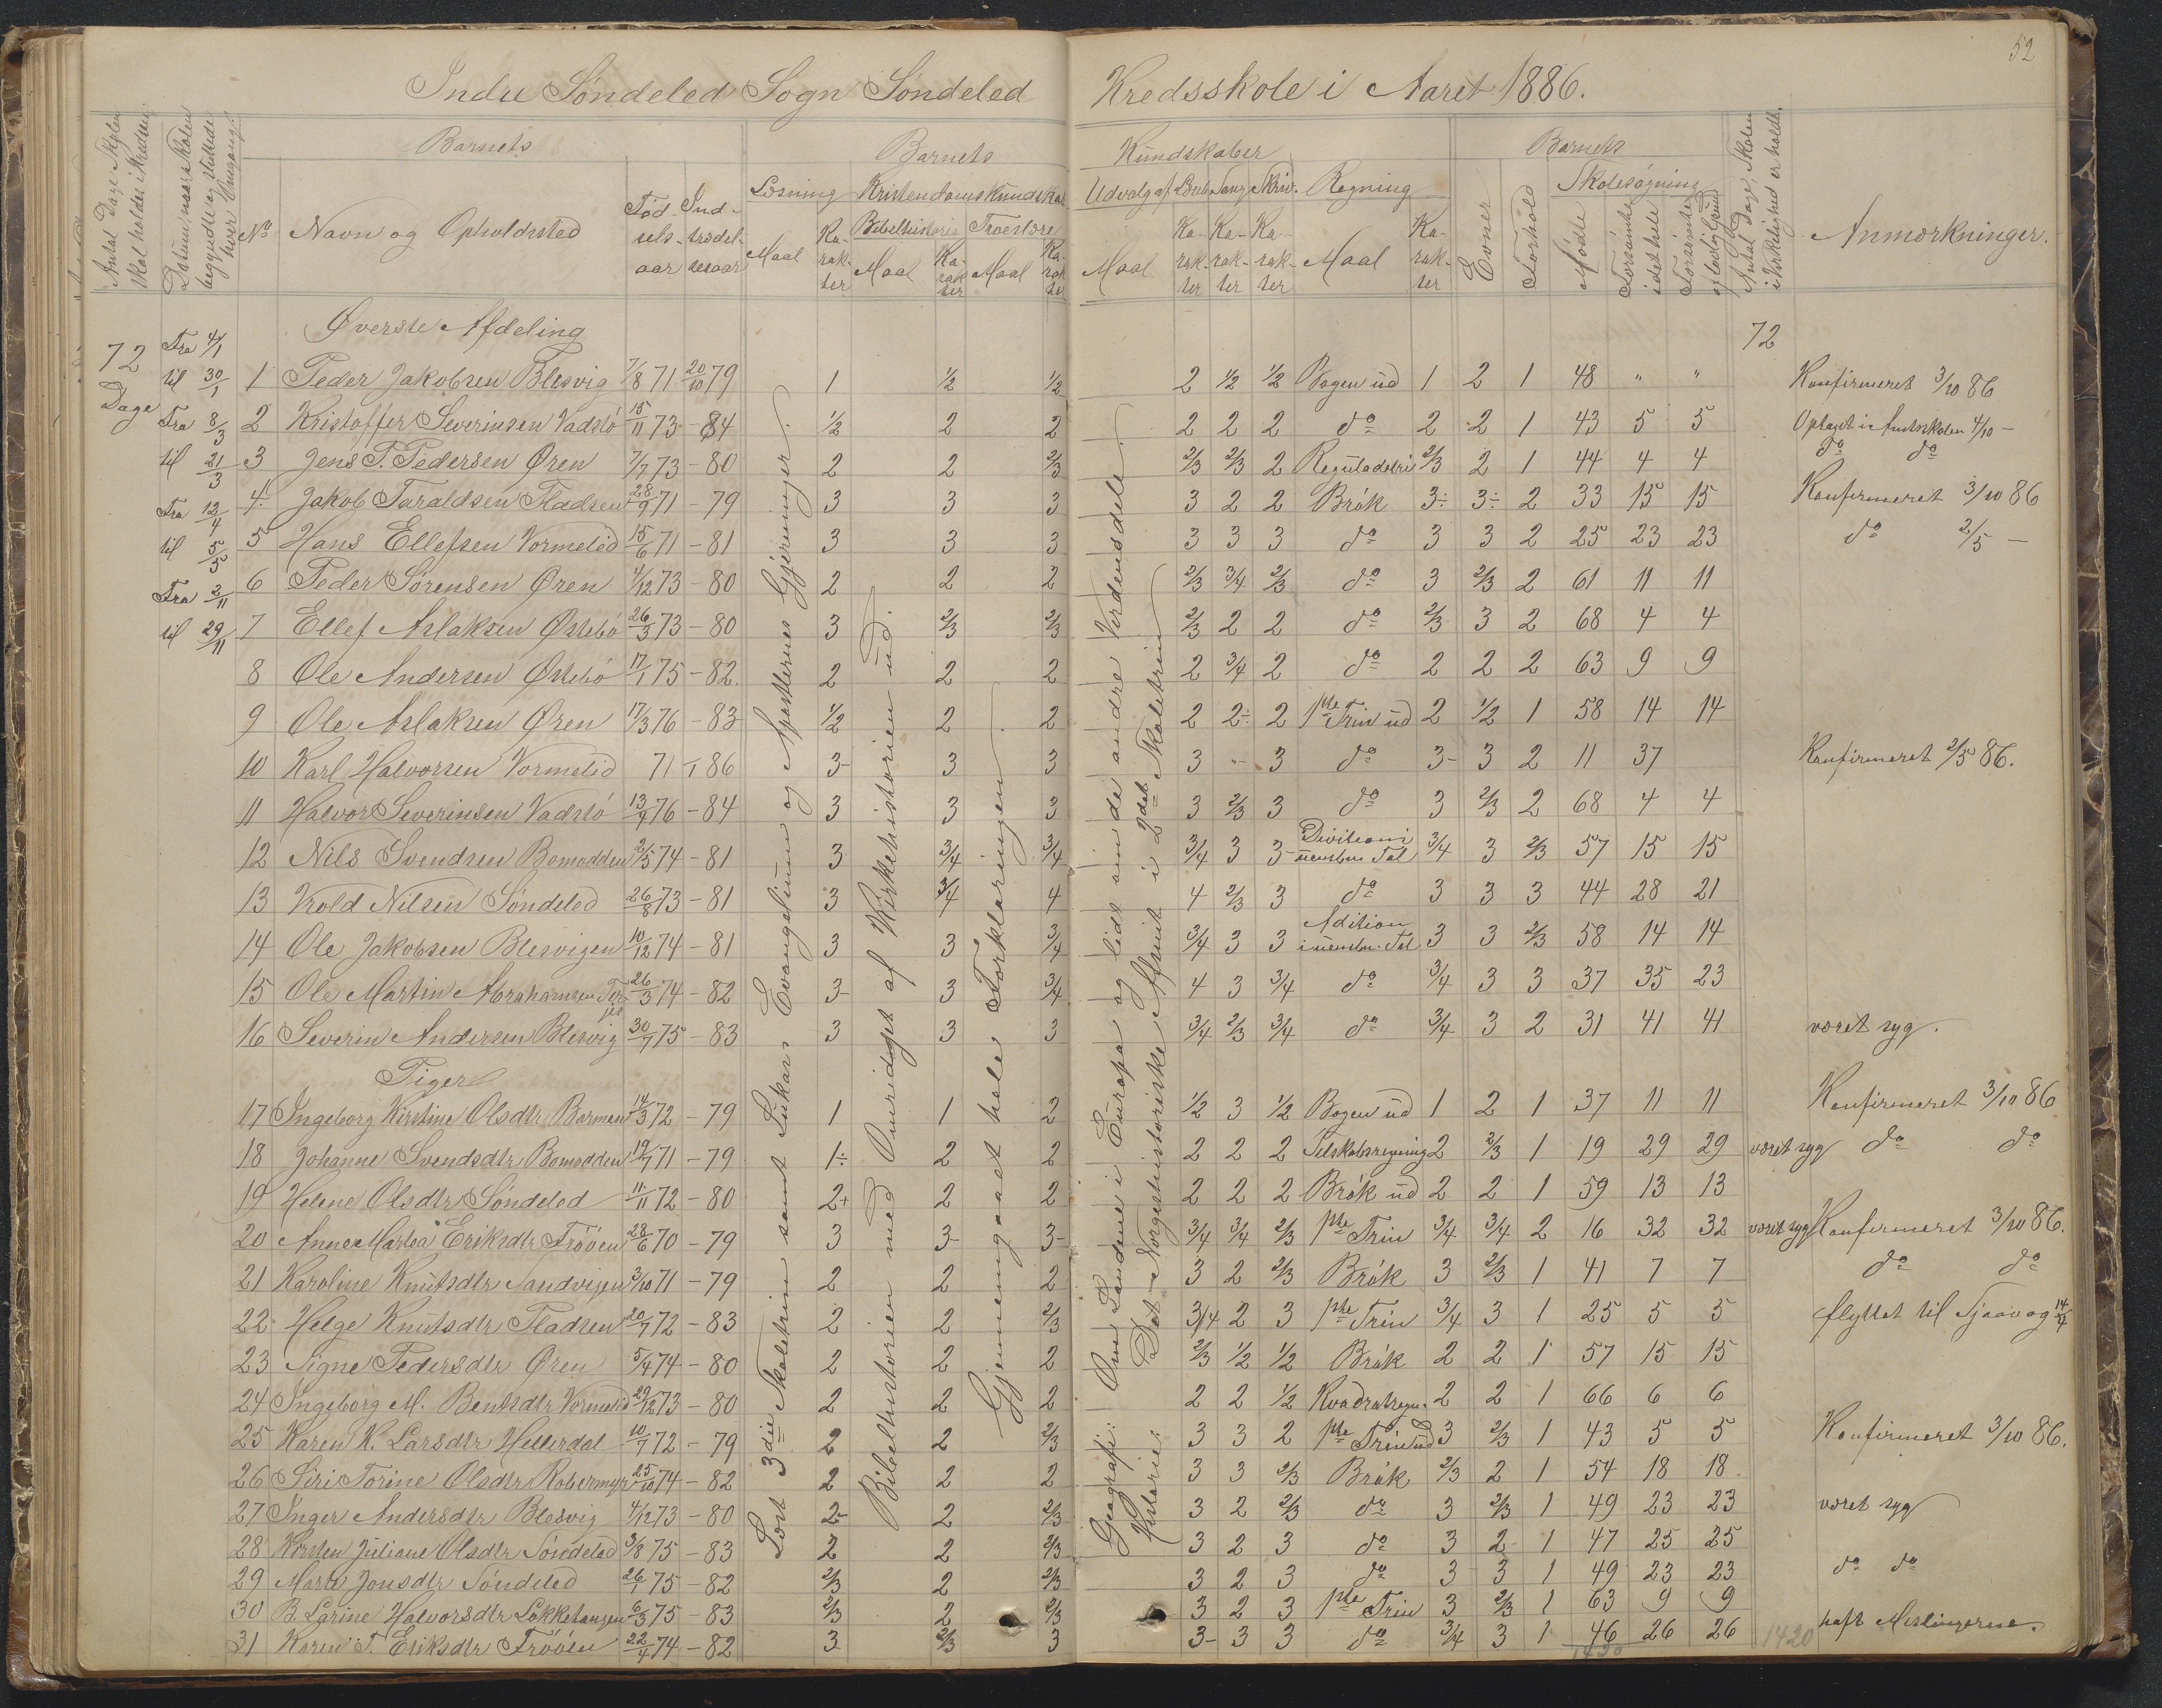 52
Indre Søndeled Sogn Søndeled Kredsskole i Aaret 1886.
Antal Dage Skolen skal holdes i Kredsen
Datum, naar Skolen begyndte og sluttede hver Omgang.
No
Barnets
Navn og Opholdssted
Fødselsaar
Indtrædelsesaar
Barnets Kundskaber
Læsning
Maal
Karakter
Kristendomskundskab
Bibelhistorie
Maal
Karakter
Troeslære
Maal
Karakter
Udvalg af Læseb.
Maal
Karakter
Sang
Karakter
Skriv.
Karakter
Regning
Maal
Karakter
Barnets
Evner
Forhold
Skolesøgning
Mødte
Forsømte i det hele
Forsømte af lovlig Grund
Antal Dage, Skolen i Virkelighed er holdt.
Anmærkninger.
72 Dage
Fra 4/1 til 30/1
Fra 8/3 til 21/3
Fra 12/4 til 5/5
Fra 2/11 til 29/11
Øverste Afdeling
72
1 Peder Jakobsen Blesvig 7/8 71 20/10 79 1 1/2 1/2 2 1/2 1/2 Bogen ud 1 2 1 48 " " Konfirmeret 3/10 86
2 Kristoffer Severinsen Vadstø 15/11 73 - 84 1/2 2 2 2 2 2 do 2 2 1 43 5 5 Optaget i Amtsskolen 4/10 -
3 Jens P. Pedersen Øren 7/7 73 - 80 2 2 2/3 2/3 2/3 2 Reguladetri 2/3 2 1 44 4 4 do do
4. Jakob Taraldsen Fladsen 28/9 71 - 79 3 3 3 3 2 2 Brøk 3÷ 3÷ 2 33 15 15 Konfirmeret 3/10 86
5 Hans Ellefsen Vormelid 15/6 71 - 81 3 3 3 3 3 3 do 3 3 2 25 23 23 do 2/5 -
6 Peder Sørensen Øren 4/12 73 - 80 2 2 2 2/3 3/4 2/3 do 3 2/3 2 61 11 11
7 Ellef Aslaksen Østebø 26/3 73 - 80 3 2/3 2/3 2/3 2 2 do 2/3 3 2 68 4 4
8 Ole Andersen Østebø 17/1 75 - 82 2 2 2 2 3/4 2 do 2 2 2 63 9 9
9 Ole Aslaksen Øren 17/3 76 - 83 1/2 2 2 2 2÷ 2 1ste Trin ud 2 1/2 1 58 14 14
10 Karl Halvorsen Vormelid 71 - 86 3- 3 3 3 - 3 do 3- 3 2 11 37 Konfirmeret 2/5 86.
11 Halvor Severinsen Vadstø 13/9 76 - 84 3 3 3 3 2/3 3 do 3 2/3 2 68 4 4
12 Nils Svendsen Bomodden 2/5 74 - 81 3 3/4 3/4 3/4 3 3 Division i uensbn. Tal 3/4 3 2/3 57 15 15
13 Vrold Nilsen Søndeled 26/8 73 - 81 3 3/4 4 4 2/3 3 do 3 3 3 44 28 21
14 Ole Jakobsen Blesvigen 10/12 74 - 81 3 3 3/4 3/4 3 3 Adition i uensbn. Tal 3 3 2/3 58 14 14
15 Ole Martin Abrahamsen 26/3 74 - 82 3- 3 3/4 4 3 3/4 do 3/4 3 3 37 35 23
16 Severin Andersen Blesvig 30/7 75 - 83 3 3 3 3/4 2/3 3/4 do 3/4 3 2 31 41 41 været syg.
Piger
17 Ingeborg Kirstine Olsdtr Barmen 14/3 72 - 79 1 1 2 1/2 3 1/2 Bogen ud 1 2 1 37 11 11 Konfirmeret 3/10 86
18 Johanne Svendsdtr Bomodden 19/7 71 - 79 1÷ 2 2 2 2 2 Selskabsregning 2 2/3 1 19 29 29 været syg do do
19 Helene Olsdtr Søndeled 11/11 72 - 80 2+ 2 2 2 2 2 Brøk ud 2 2 1 59 13 13
20 Anne Martea Eriksdtr Frøøen 28/6 70 - 79 3 3- 3- 3/4 3/4 2/3 1ste Trin 3/4 3/4 2 16 32 32 været syg Konfirmeret 3/10 86.
21 Karoline Knutsdtr Sandvigen 3/10 71 - 79 2 2 2 3 2 2/3 Brøk 3 2/3 1 41 7 7 do do
22 Helge Knutsdtr Fladsen 20/7 72 - 83 2 2 2/3 3/4 2 3 1ste Trin 3/4 3 1 25 5 5 flyttet til
23 Signe Pedersdtr Øren 5/4 74 - 80 2 2 2 2/3 1/2 1/2 Brøk 2 2 1 57 15 15
24 Ingeborg M. Bentsdtr Vormelid 29/12 73 - 80 2 2 2 2 2 1/2 Kvadratregn. 2 2 1 66 6 6
25 Karen K. Larsdtr Hellerdal 10/7 72 - 79 2 2 2/3 3 3 2 1ste Trin ud 3 2/3 1 43 5 5 Konfirmeret 3/10 86.
26 Siri Torine Olsdtr Robermyr 25/10 74 - 82 2 2 2 3 3 2/3 Brøk 2/3 2 1 54 18 18
27 Inger Andersdtr Blesvig 4/12 73 - 80 2- 2 2/3 3 2 2/3 do 3 2/3 1 49 23 23 været syg
28 Kirsten Juliane Olsdtr Søndeled 3/8 75 - 83 2 2 2/3 3 2 3 do 3 2 1 47 25 25
29 Marte Jonsdtr Søndeled 26/1 75 - 82 2/3 2 2/3 3 2 3 do 3 3 1 49 23 23 do do
30 B. Larine Halvorsdtr Løkketangen 6/3 75 - 83 2/3 2 2/3 3 2 3 1ste Trin 3 2/3 1 63 9 9
31 Karen T. Eriksdtr Frøøen 22/4 74 - 82 3 2/3 3 3- 3 3 do 3/4 3 1 46 26 26 1420 haft Meslingerne.
1420
Læst 3die Skoletrin samt Lukas Evangelium og Apostlernes Gjerninger.
Bibelhistorien med Omridset af Kirkehistorien ud.
Gjennemgaaet hele Forklaringen.
Geografi: Om Landene i Europa og lidt om de andre Verdensdele.
Historie: Det Norgeshistoriske Afsnit i 2det Skoletrin